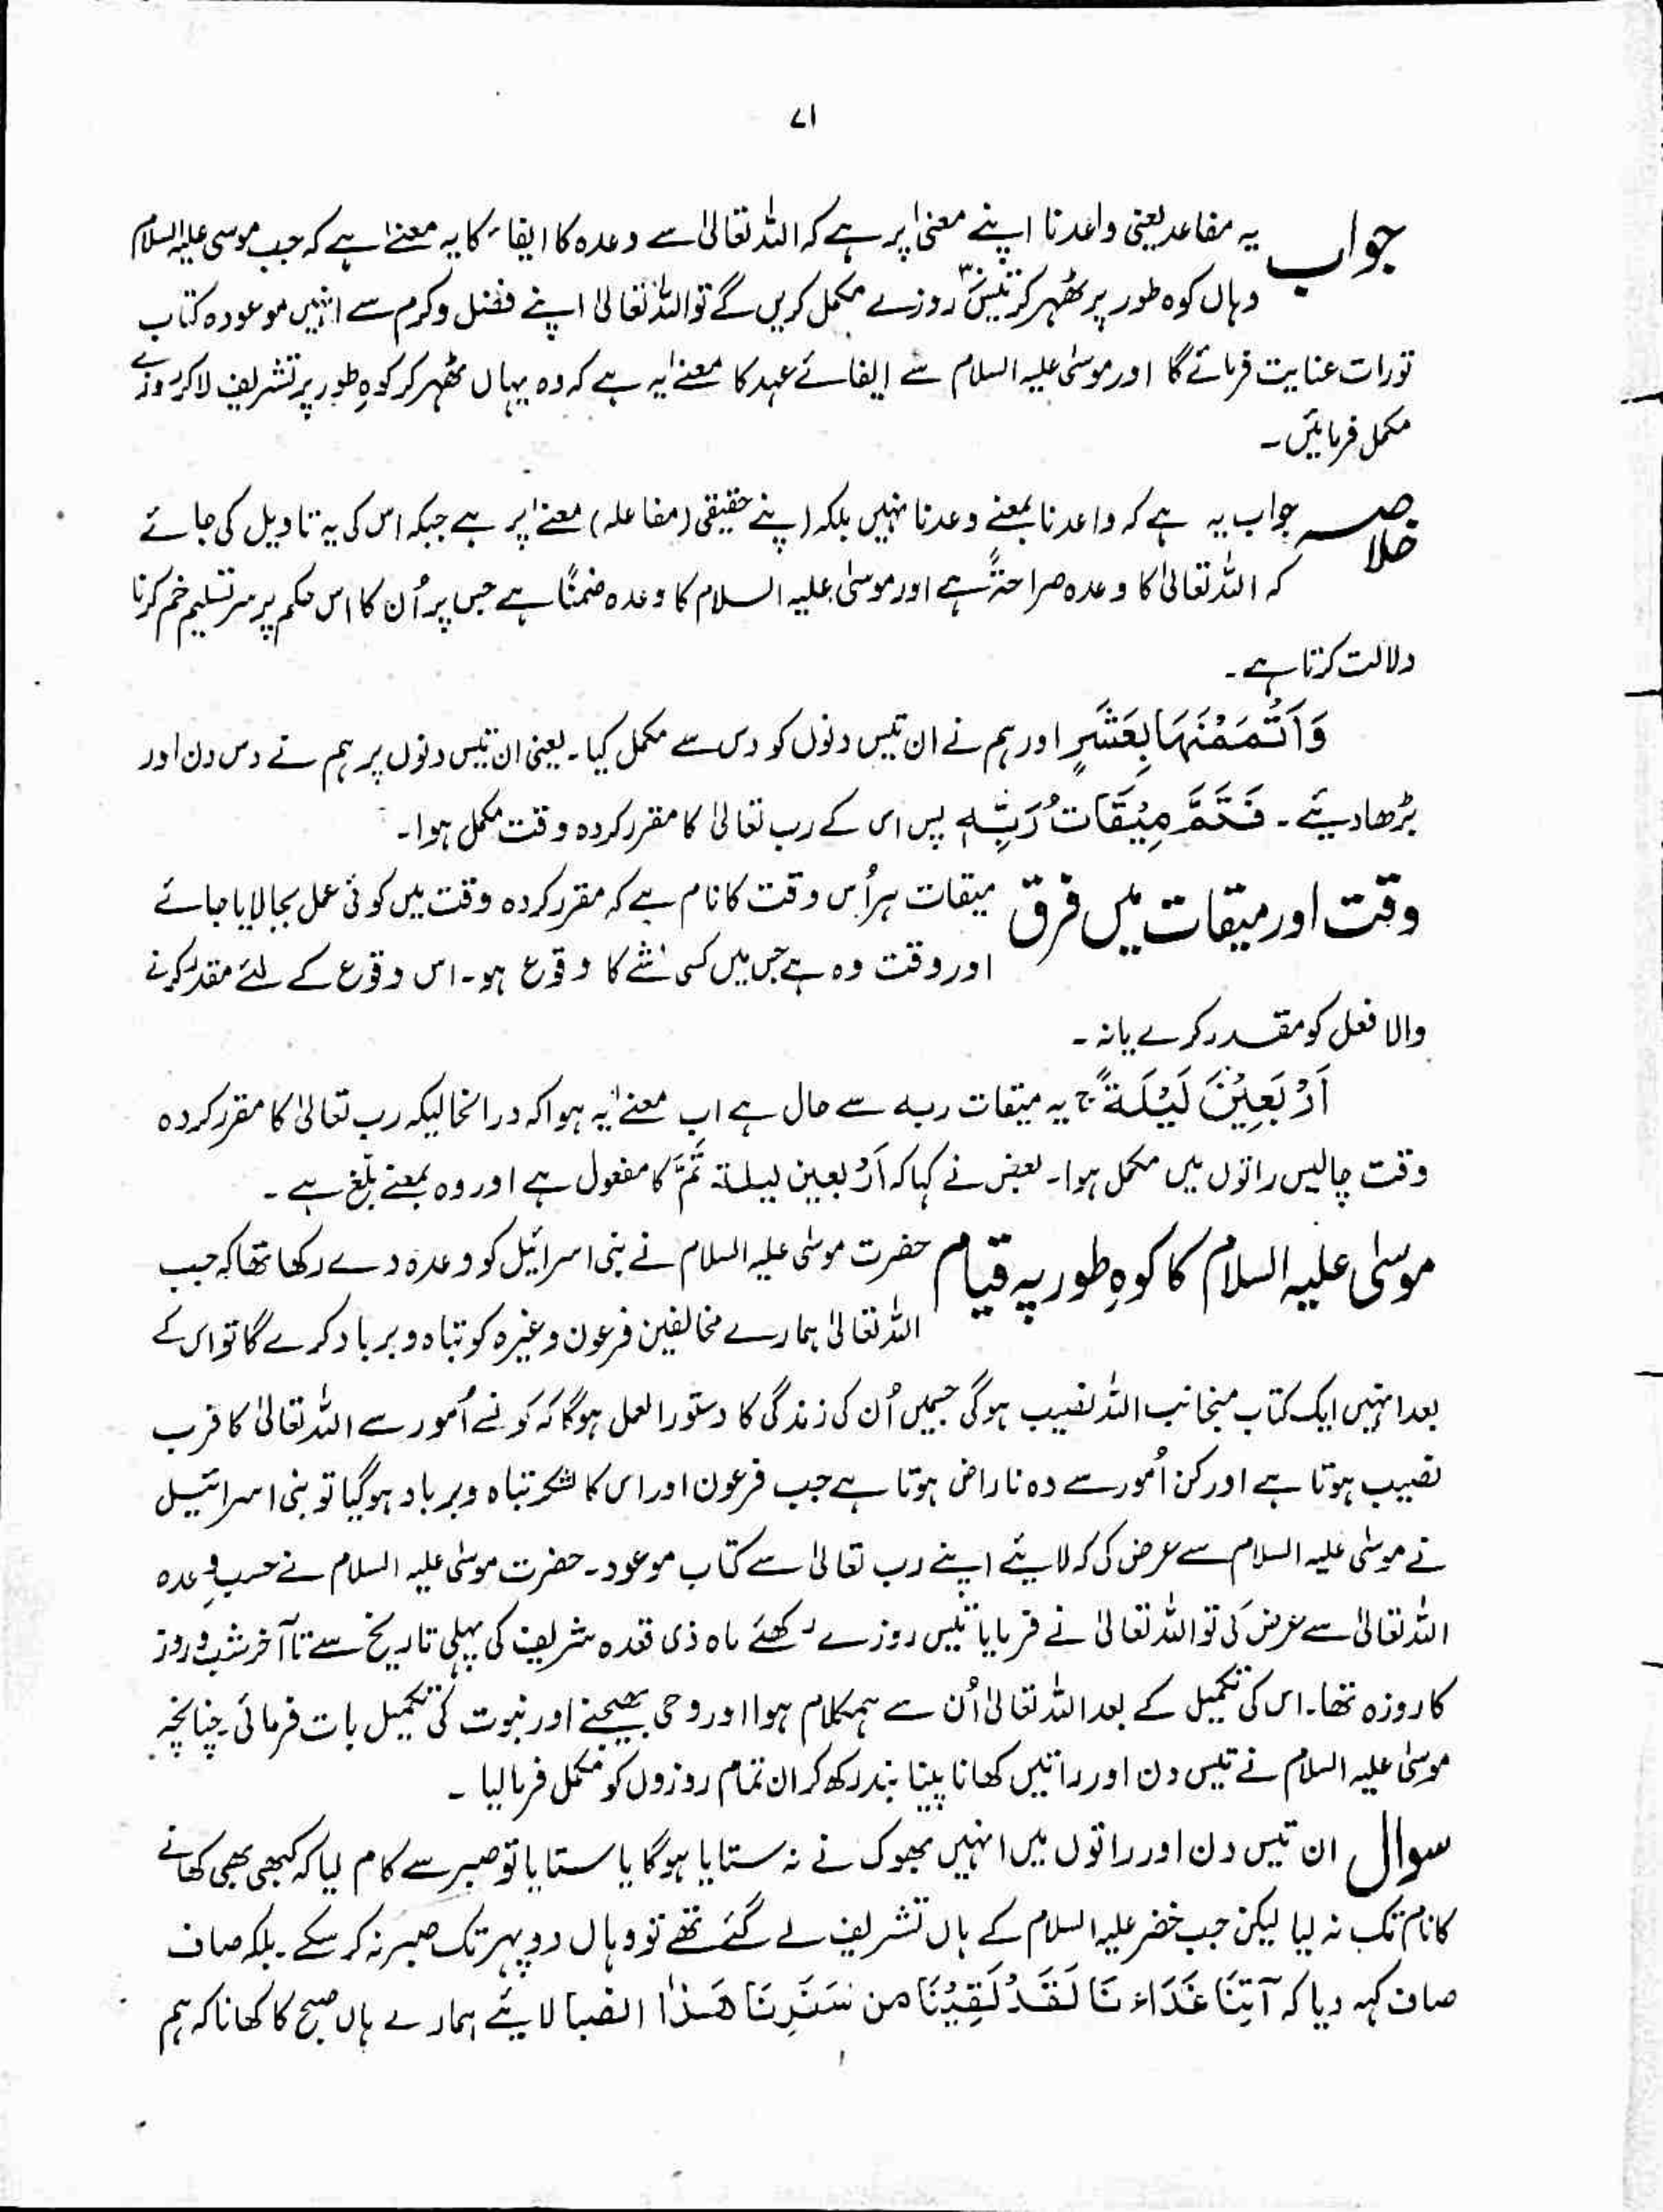 ۷۱
جواب یہ مفاعد یعنی واعدنا اپنے معنیٰ پر ہے کہ اللہ تعالیٰ سے وعدہ کا ایفاء کا یہ معنےٰ ہے کہ جب موسی علیہ السلام
وہاں کوہ طور پر ٹھہر کر تیس روزے مکمل کریں گے تو اللہ تعالیٰ اپنے فضل و کرم سے انہیں موعودہ کتاب
تورات عنایت فرمائے گا اور موسیٰ علیہ السلام سے ایفائے عہد کا معنےٰ یہ ہے کہ وہ یہاں ٹھہر کر کوہِ طور پر تشریف لا کر روزے
مکمل فرمائیں ۔
خلاصہ جواب یہ ہے کہ واعدنا بمعنے وعدنا نہیں بلکہ اپنے حقیقی (مفاعلہ) معنےٰ پر ہے جبکہ اس کی یہ تاویل کی جائے
کہ اللہ تعالیٰ کا وعدہ صراحتہً ہے اور موسیٰ علیہ السلام کا وعدہ ضمنًا ہے جس پر اُن کا اس حکم پر سر تسلیم خم کرنا
دلالت کرتا ہے ۔
وَاَتْمَمْنٰهَا بِعَشْرٍ اور ہم نے ان تیس دنوں کو دس سے مکمل کیا ۔ یعنی ان تیس دنوں پر ہم نے دس دن اور
بڑھا دیئے ۔ فَتَمَّ مِیْقَاتُ رَبِّہٖ پس اس کے رب تعالیٰ کا مقرر کردہ وقت مکمل ہوا ۔
وقت اور میقات میں فرق میقات ہر اُس وقت کا نام ہے کہ مقرر کردہ وقت میں کوئی عمل بجا لایا جائے
اور وقت وہ ہے جس میں کسی شئے کا وقوع ہو ۔ اس وقوع کے لئے مقدر کرنے
والا فعل کو مقدر کرے یا نہ ۔
اَرْبَعِیْنَ لَیْلَةً ج یہ میقات ربہ سے حال ہے اب معنےٰ یہ ہوا کہ درانحالیکہ رب تعالیٰ کا مقرر کردہ
وقت چالیس راتوں میں مکمل ہوا ۔ بعض نے کہا کہ اَرْبعین لیلة تَمَّ کا مفعول ہے اور وہ بمعنے بلغ ہے ۔
موسیٰ علیہ السلام کا کوہِ طور پہ قیام حضرت موسٰی علیہ السلام نے بنی اسرائیل کو وعدہ دے رکھا تھا کہ جب
اللہ تعالیٰ ہمارے مخالفین فرعون وغیرہ کو تباہ و برباد کرے گا تو اس کے
بعد انہیں ایک کتاب منجانب اللہ نصیب ہوگی جسمیں اُن کی زندگی کا دستور العمل ہوگا کہ کونسے اُمور سے اللہ تعالیٰ کا قرب
نصیب ہوتا ہے اور کن اُمور سے وہ ناراض ہوتا ہے جب فرعون اور اس کا لشکر تباہ و برباد ہو گیا تو بنی اسرائیل
نے موسٰی علیہ السلام سے عرض کی کہ لایئے اپنے رب تعالیٰ سے کتاب موعود ۔ حضرت موسٰی علیہ السلام نے حسب وعدہ
اللہ تعالیٰ سے عرض کی تو اللہ تعالیٰ نے فرمایا تیس روزے رکھئے ماہ ذی قعدہ شریف کی پہلی تاریخ سے تا آخر شب و روز
کا روزہ تھا ۔ اس کی تکمیل کے بعد اللہ تعالیٰ اُن سے ہمکلام ہوا اور وحی بھیجنے اور نبوت کی تکمیل بات فرمائی چنانچہ
موسیٰ علیہ السلام نے تیس دن اور راتیں کھانا پینا بند رکھ کر ان تمام روزوں کو مکمل فرما لیا ۔
سوال ان تیس دن اور راتوں میں انہیں بھوک نے نہ ستایا ہوگا یا ستایا تو صبر سے کام لیا کہ کبھی بھی کھانے
کا نام تک نہ لیا لیکن جب خضر علیہ السلام کے ہاں تشریف لے گئے تھے تو وہاں دوپہر تک صبر نہ کر سکے ۔ بلکہ صاف
صاف کہہ دیا کہ آتِنَا غَدَاءَنَا لَقَدْ لَقِيْنَا من سَفَرِنَا هَذٰا النصبا لایئے ہمارے ہاں صبح کا کھانا کہ ہم